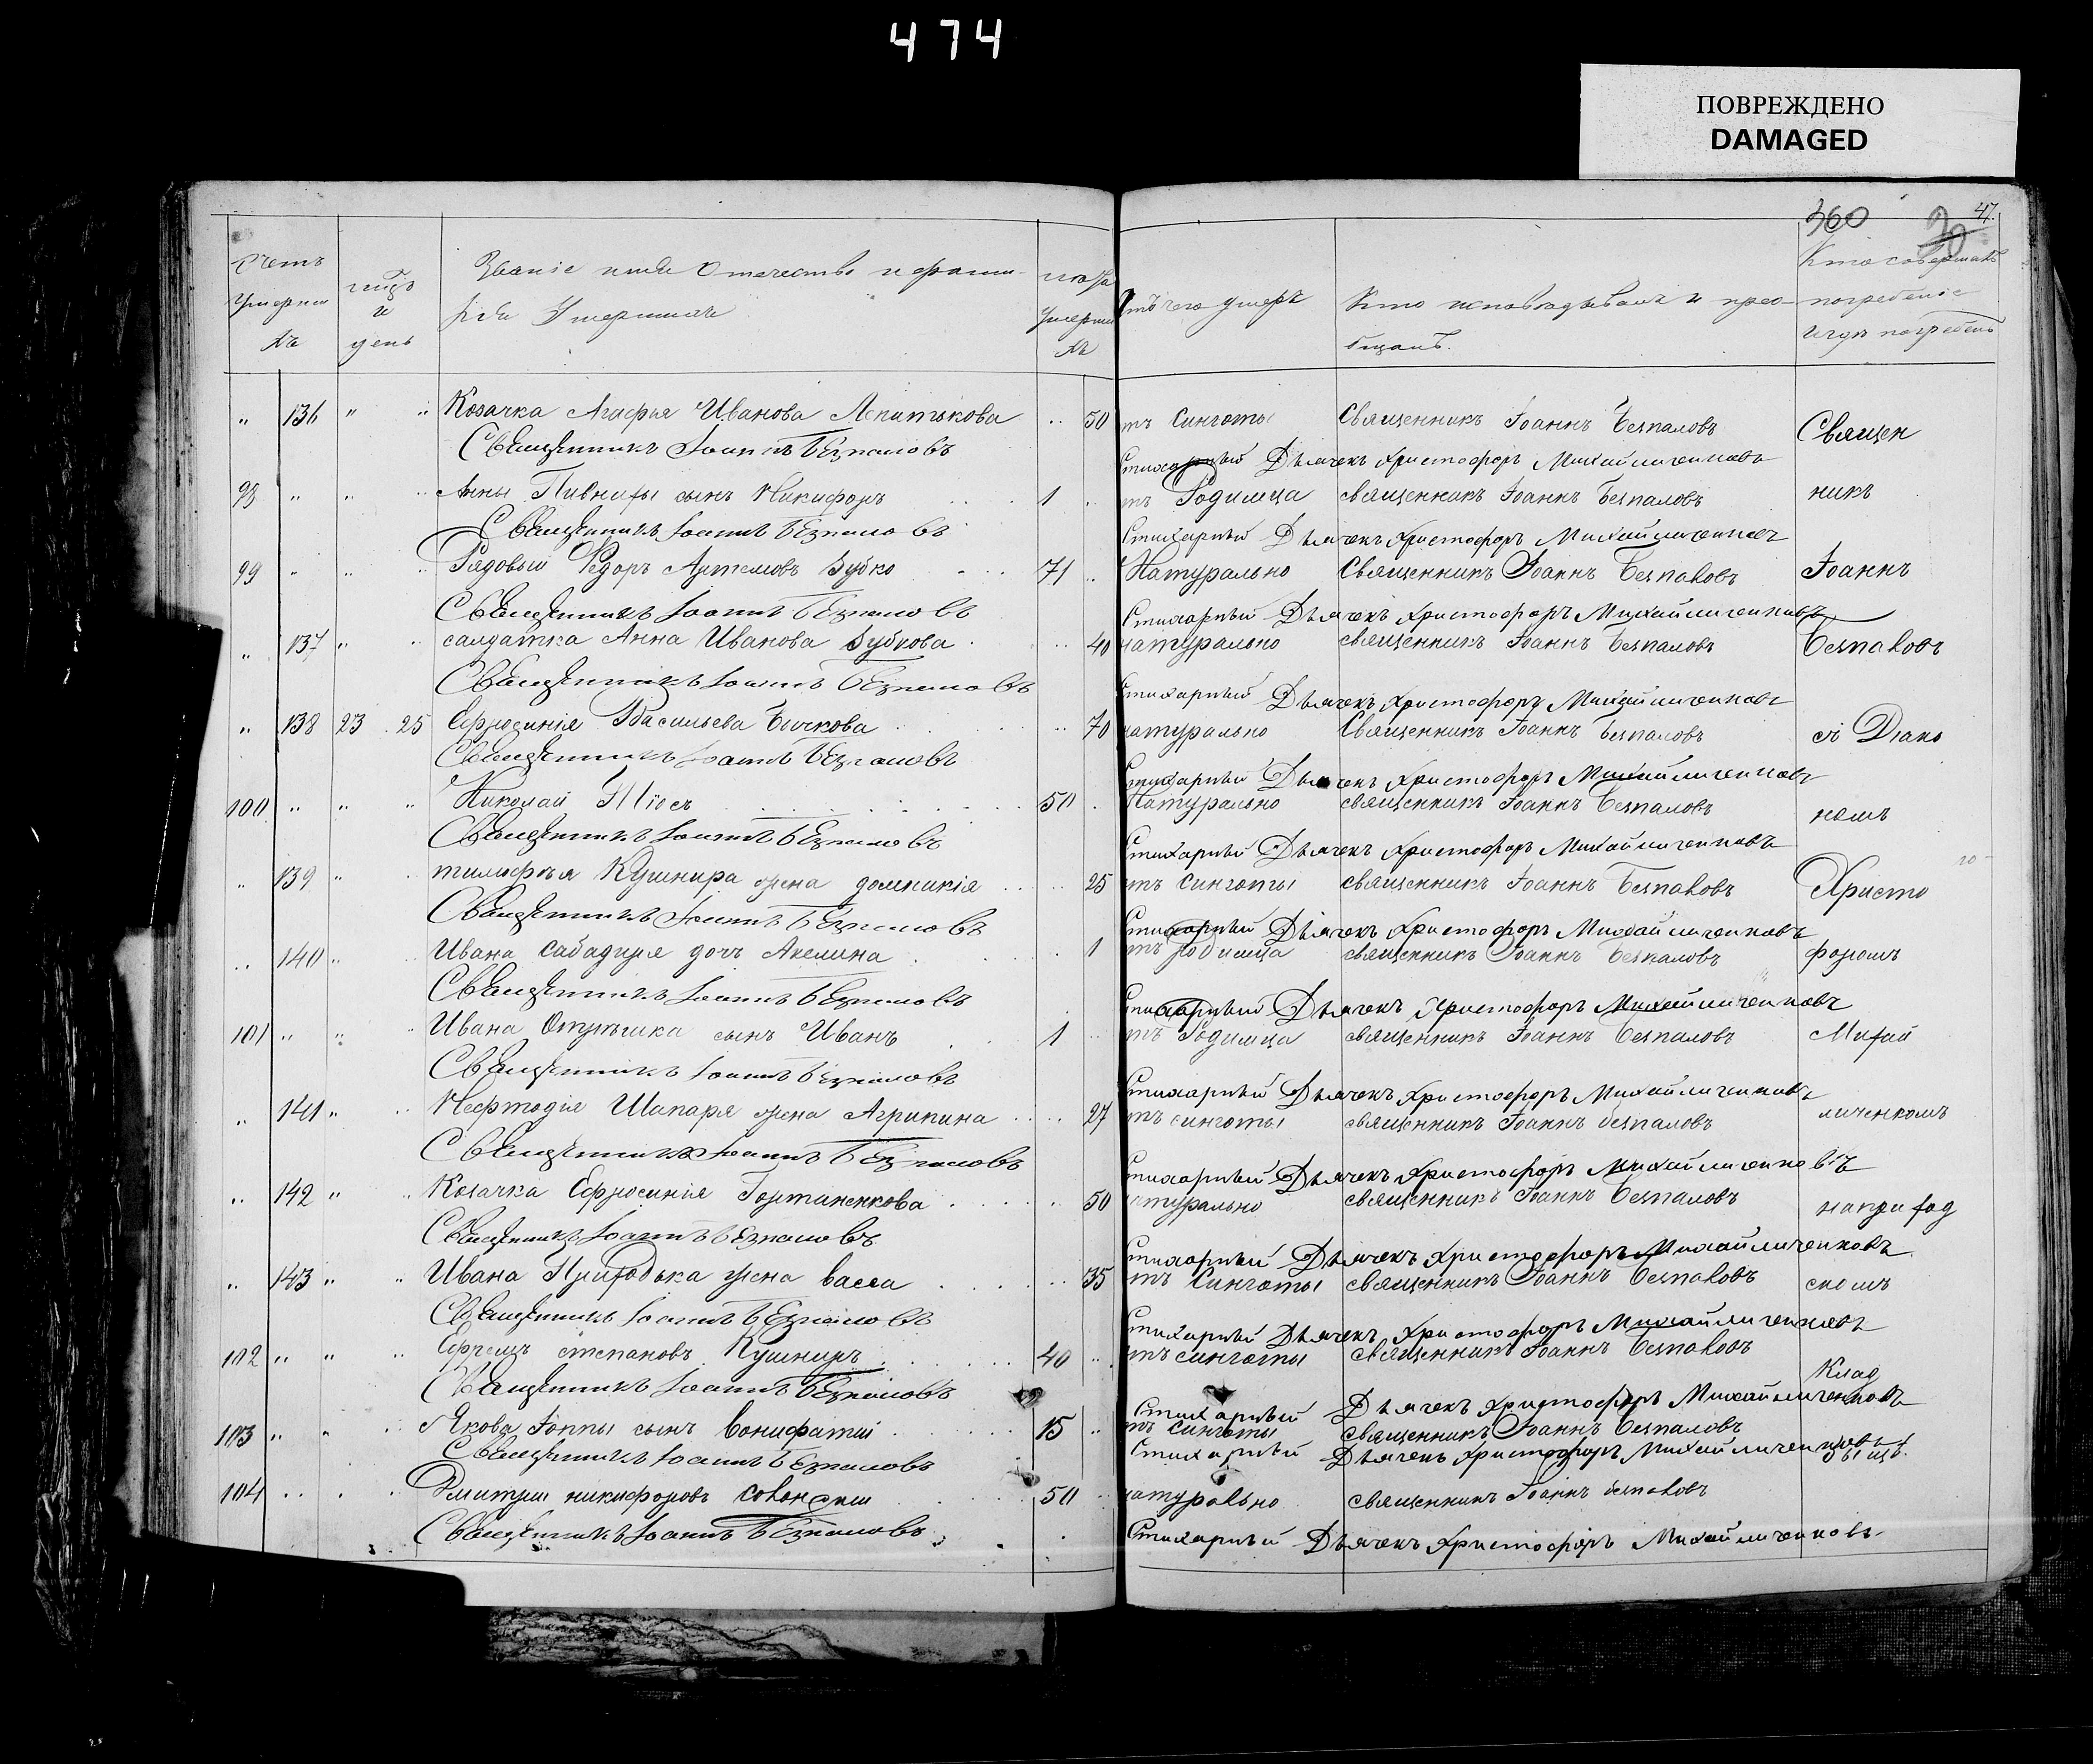 474
ПОВРЕЖДЕНО
DAMAGED
360 47.
Счетъ умершихъ день Званіе имя Отечество и фами- лета умерши хъ отъ чего умеръ Кто исповѣдывалъ и прео- бщалъ. Кто совершалъ погребеніе и гдѣ погребенъ
" 136 " " Козачка Агафья Иванова 50 тъ Сухоты Священникъ Іоаннъ Безпаловъ Священ
Священникъ Іоаннъ Безпаловъ Стихарный Дьячекъ Христофоръ Михайличенковъ
98 " " " Анны сынъ Никифоръ 1 тъ Родимца священникъ Іоаннъ Безпаловъ никъ
Священникъ Іоаннъ Безпаловъ Стихарный Дьячекъ Христофоръ Михайличенковъ
99 " " " Рядовый Федоръ Артемовъ Зубко 71 Натурально Священникъ Іоаннъ Безпаловъ Іоаннъ
Священникъ Іоаннъ Безпаловъ Стихарный Дьячекъ Христофоръ Михайличенковъ
" 137 " " салдатка Анна Иванова Зубкова 40 натурально священникъ Іоаннъ Безпаловъ Безпаловъ
Священникъ Іоаннъ Безпаловъ Стихарный Дьячекъ Христофоръ Михайличенковъ
" 138 23 25 Ефросинія Васильева Бичкова 70 натурально Священникъ Іоаннъ Безпаловъ съ Діако
Священникъ Іоаннъ Безпаловъ Стихарный Дьячекъ Христофоръ Михайличенковъ
100 " " " Николай 50 Натурально священникъ Іоаннъ Безпаловъ номъ
Священникъ Іоаннъ Безпаловъ Стихарный Дьячекъ Христофоръ Михайличенковъ
" 139 " " Кушнира жена домникія 25 тъ сухоты священникъ Іоаннъ Безпаловъ Христо
Священникъ Іоаннъ Безпаловъ Стихарный Дьячекъ Христофоръ Михайличенковъ
" 140 " Ивана Сабадиря доч Акелина 1 тъ родимца священникъ Іоаннъ Безпаловъ форомъ
Священникъ Іоаннъ Безпаловъ Стихарный Дьячекъ Христофоръ Михайличенковъ
101 " " " Ивана сынъ Иванъ 1 тъ Родимца священникъ Іоаннъ Безпаловъ Михай
Священникъ Іоаннъ Безпаловъ Стихарный Дьячекъ Христофоръ Михайличенковъ
" 141 " " Мефтодія Шапаря жена Агрипина 27 тъ сухоты священникъ Іоаннъ безпаловъ личенкомъ
Священникъ Іоаннъ Безпаловъ Стихарный Дьячекъ Христофоръ Михайличенковъ
" 142 " " Козачка Ефросинія Гортаненкова 50 натурально священникъ Іоаннъ Безпаловъ на приход
Священникъ Іоаннъ Безпаловъ Стихарный Дьячекъ Христофоръ Михайличенковъ
" 143 " " Ивана Приходька жена васса 35 тъ Сухоты священникъ Іоаннъ Безпаловъ скомъ
Священникъ Іоаннъ Безпаловъ Стихарный Дьячекъ Христофоръ Михайличенковъ
102 " " " Ефремъ степановъ Кушниръ 40 тъ сухоты священникъ Іоаннъ Безпаловъ Клад
Священникъ Іоаннъ Безпаловъ Стихарный Дьячекъ Христофоръ Михайличенковъ
103 " " " Якова сынъ вонифатій 15 тъ Сухоты священникъ Іоаннъ Безпаловъ
Священникъ Іоаннъ Безпаловъ Стихарный Дьячекъ Христофоръ Михайличенковъ бищѣ
104 " " " Дмитрій никифоровъ 50 натурально священникъ Іоаннъ безпаловъ
Священникъ Іоаннъ Безпаловъ Стихарный Дьячекъ Христофоръ Михайличенковъ